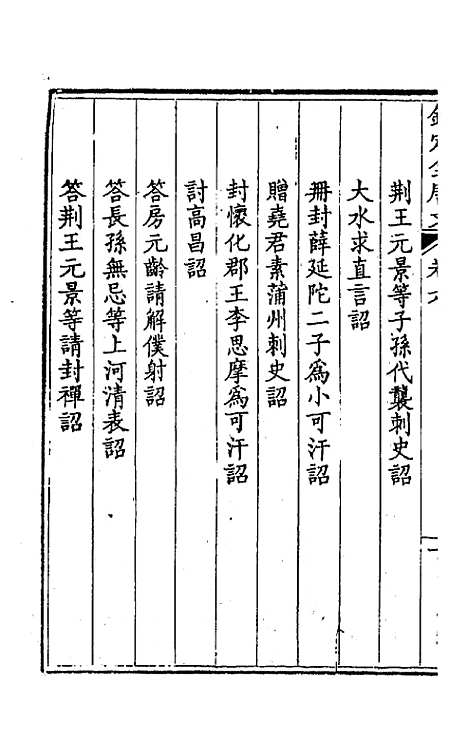 荆王元景等子孫代襲刺史詔
大水求直言詔
冊封薛延陀二子爲小可汗詔
贈堯君素蒲州刺史詔
封懷化郡王李思摩爲可汗詔
討高昌詔
答房元齡請解僕射詔
答長孫無忌等上河清表詔
答荆王元景等請封禪詔